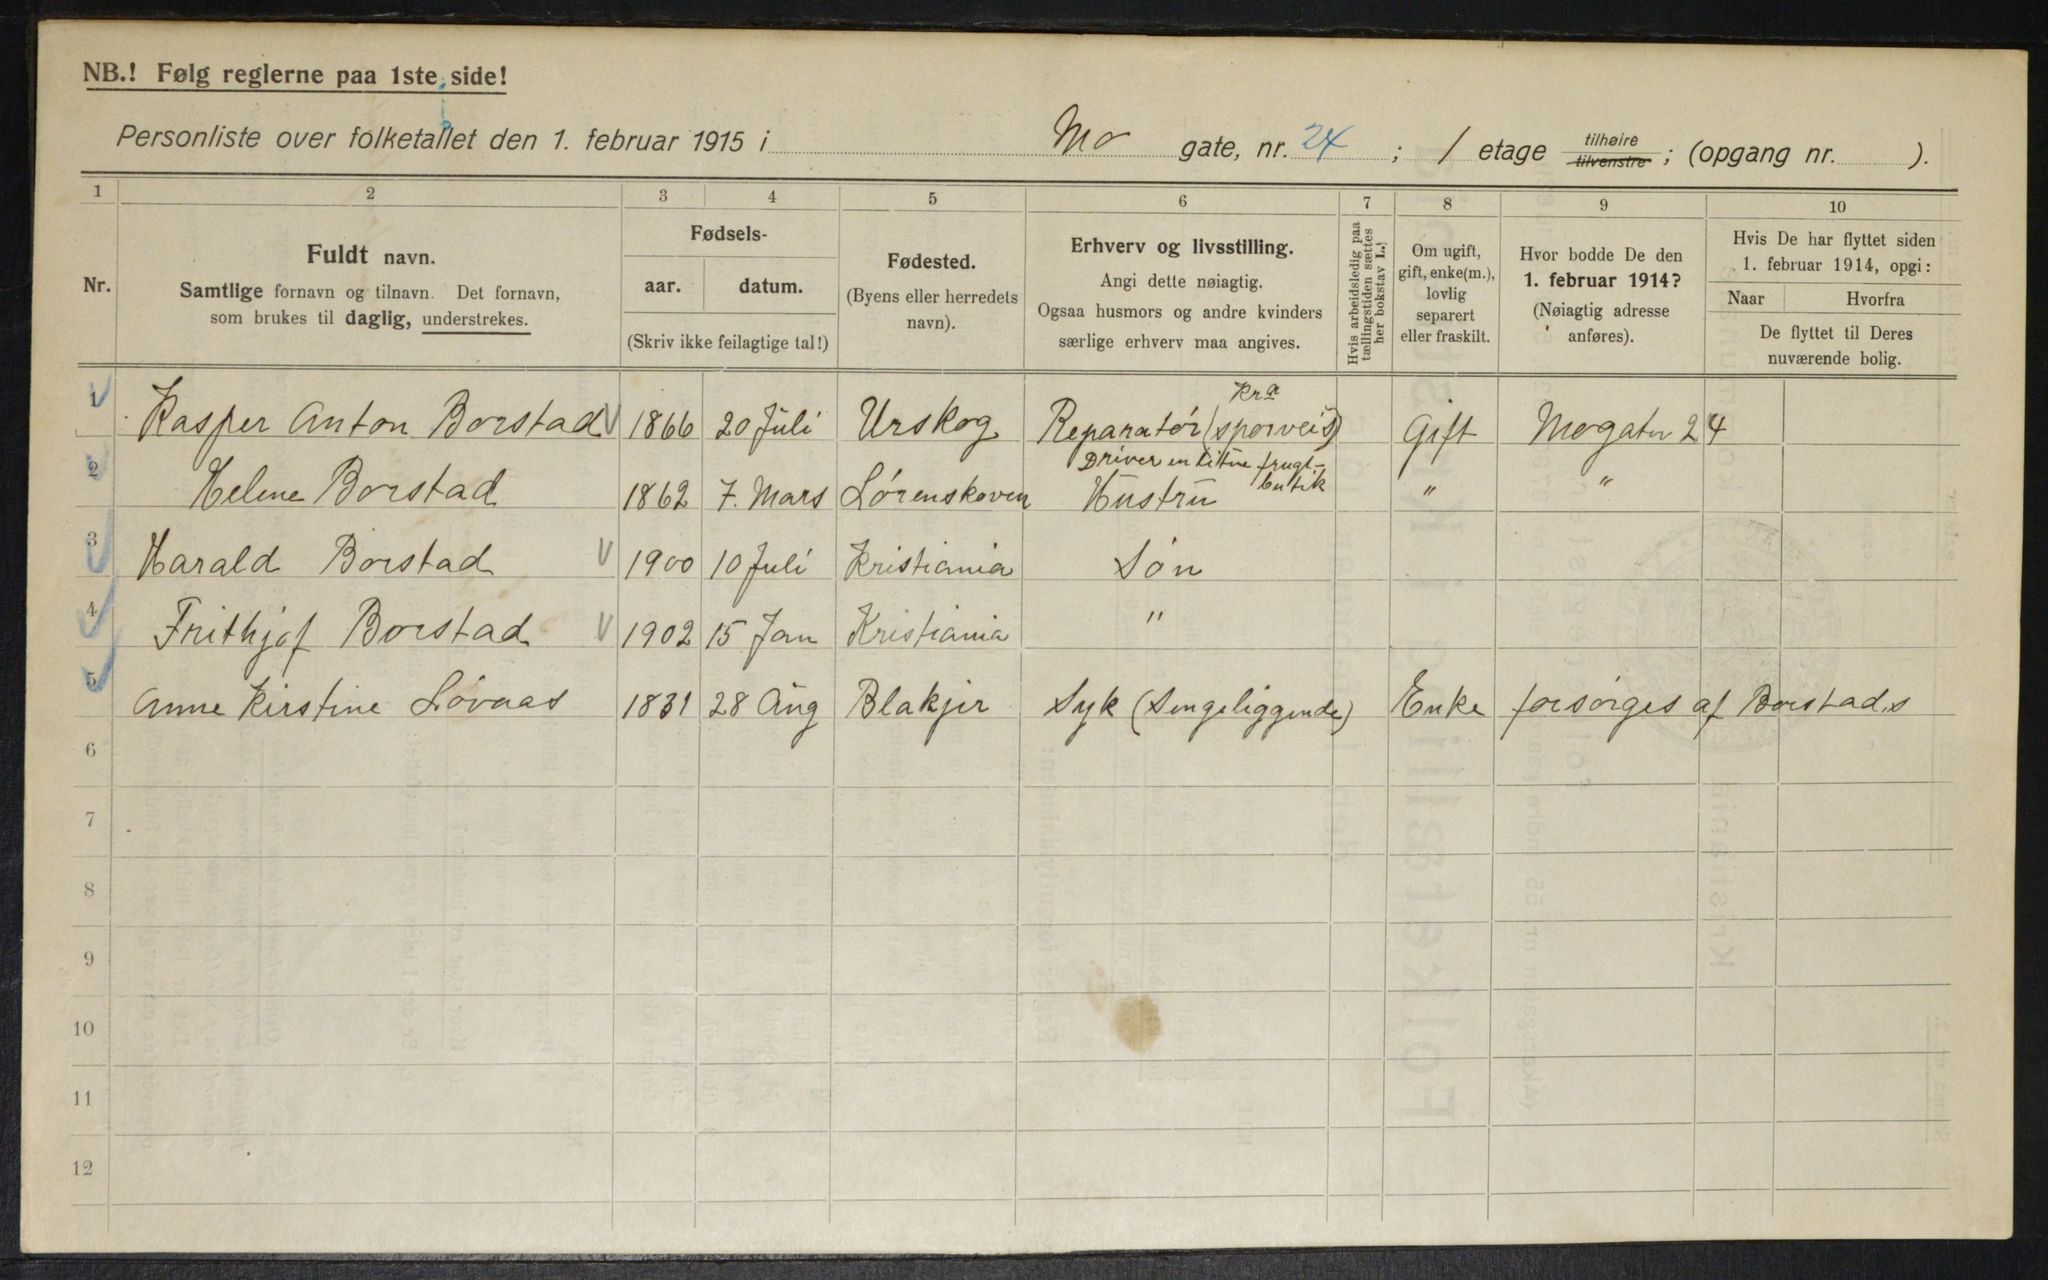 NB.! Følg reglerne paa 1ste side!
Personliste over folketallet den 1. februar 1915 i Mo gate, nr. 24 ; 1 etage tilhøire tilvenstre ; (opgang nr. ).
1 2 3 4 5 6 7 8 9 10
Nr.
Fuldt navn.
Samtlige fornavn og tilnavn. Det fornavn,
som brukes til daglig, understrekes.
Fødsels-
aar. datum.
(Skriv ikke feilagtige tal!)
Fødested.
(Byens eller herredets
navn).
Erhverv og livsstilling.
Angi dette nøiagtig.
Ogsaa husmors og andre kvinders
særlige erhverv maa angives.
Hvis arbeidsledig paa
tællingstiden sættes
her bokstav L.!
Om ugift,
gift, enke(m.),
lovlig
separert
eller fraskilt.
Hvor bodde De den
1. februar 1914?
(Nøiagtig adresse
anføres).
Hvis De har flyttet siden
1. februar 1914, opgi:
Naar Hvorfra
De flyttet til Deres
nuværende bolig.
1 Kasper Anton Borstad 1866 20 Juli Urskog Reparatør (sporveis) Kra Gift Mogaten 24
2 Helene Borstad 1862 7. Mars Lørenskoven Driver en liten frugt-butik Hustru " "
3 Harald Borstad 1900 10 Juli Kristiania Søn
4 Frithjof Borstad 1902 15 Jan Kristiania "
5 Anne Kirstine Løvaas 1831 28 Aug Blakjer Syk (Sengeliggende) Enke forsørges af Borstads
6
7
8
9
10
11
12